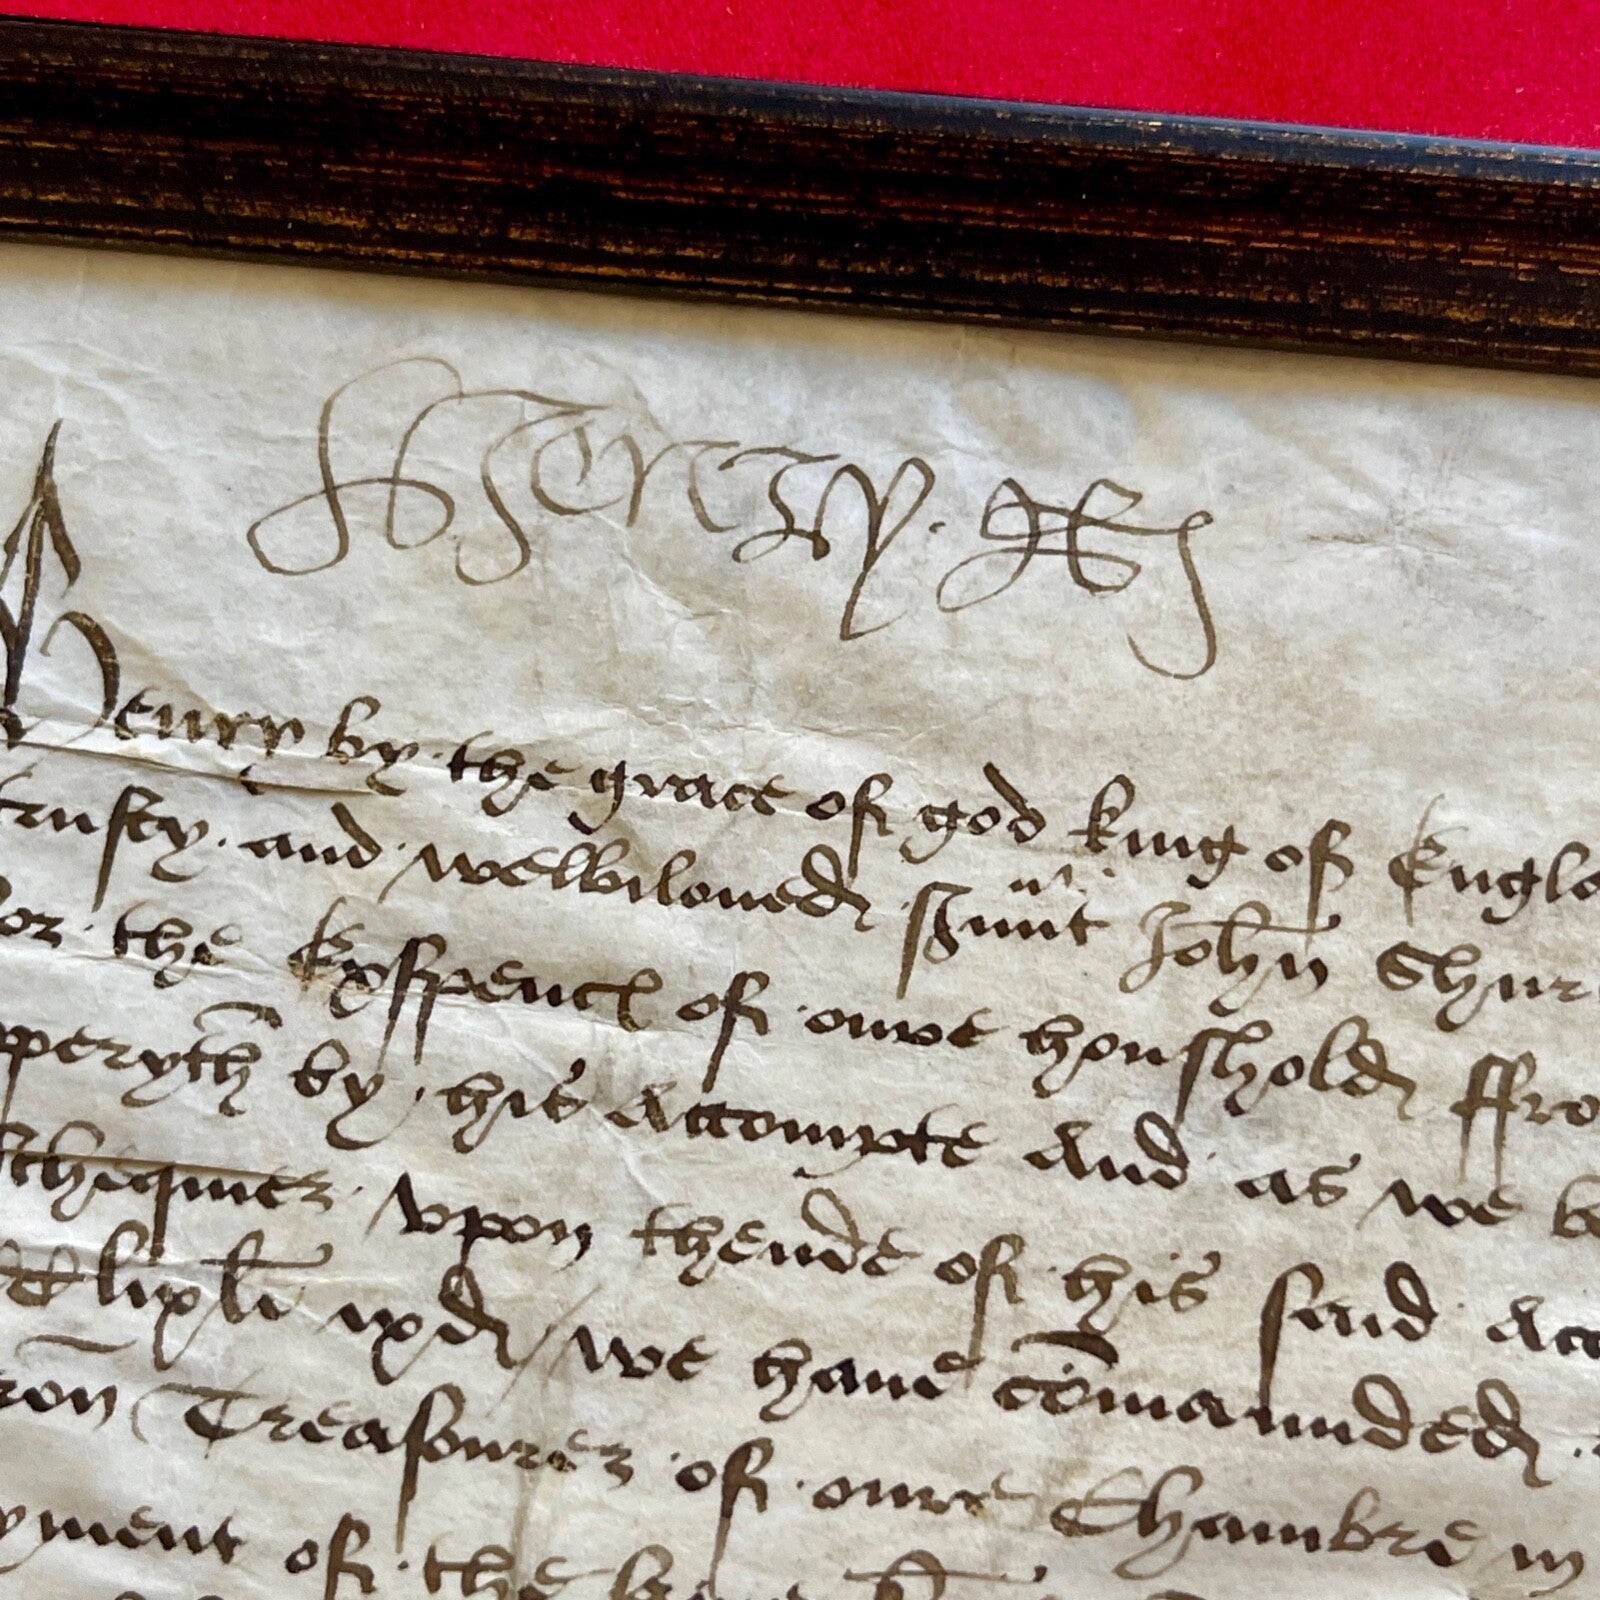 Henry R
Henry by the grace of god king of Engla
trusty and welbiloued s͛unt John Shur
or the Exspenc of oure houshold ffro
pperyth by his accompte And as we b
chequier vpon thende of his said Acc
lixli ixd / we haue com̄aunded
ron Treasourer of oure Chambre in
yment of the